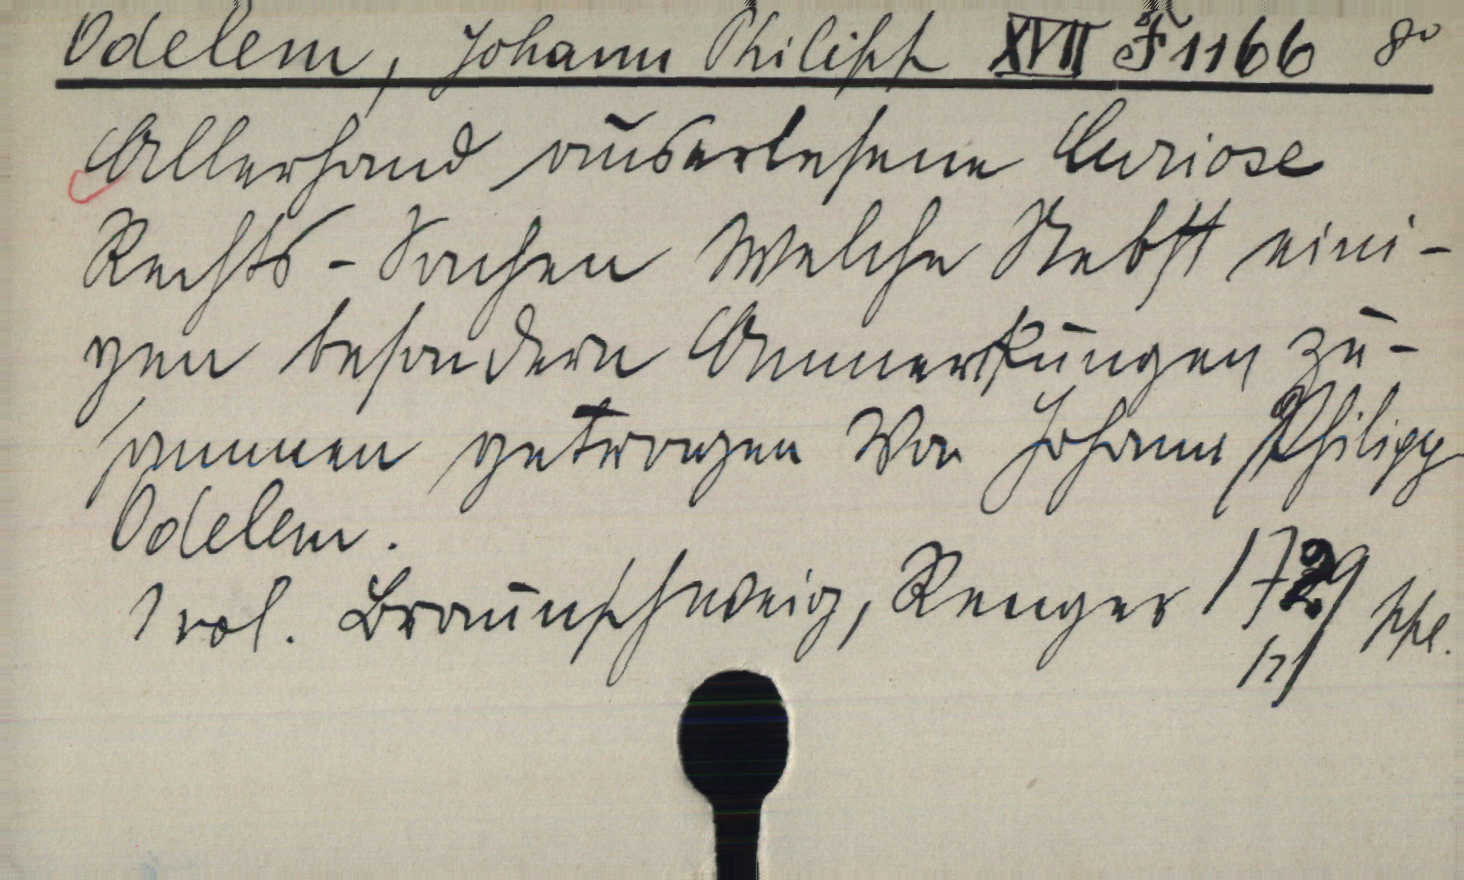 Odelem, Johann Philipp XVII F 1166 8°
Allerhand auserlesene Curiose
Rechts-Sachen Welche Nebst eini-
gen besondern Anmerkungen zu-
sammen getragen Von Johann Philipp
Odelem.
1 vol. Braunschweig, Renger 1729